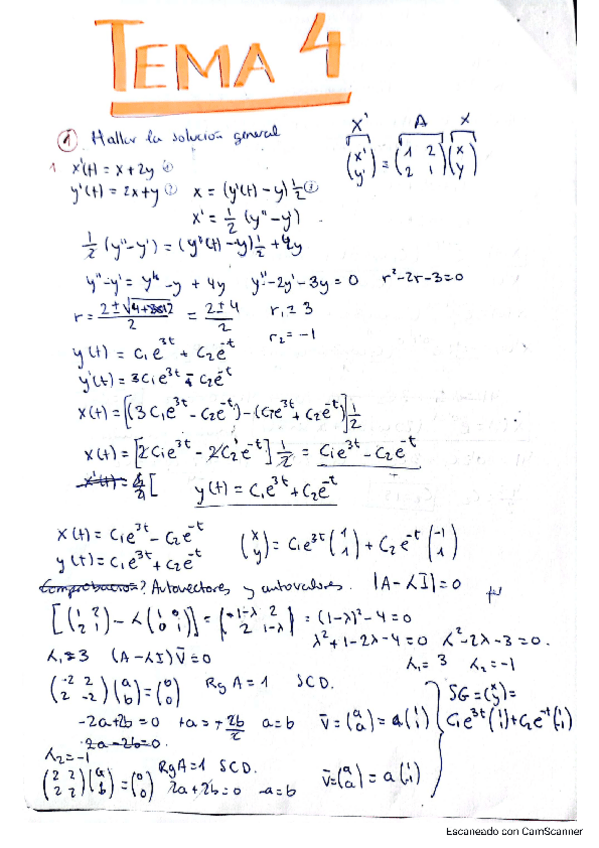 TEMA 4
① Hallar la solución general
X' A X
(x' y') = (1 2 2 1)(x y)
1 x'(t) = x + 2y ①
y'(t) = 2x + y ② x = (y'(t) - y) 1/2 ③
x' = 1/2 (y'' - y')
1/2 (y'' - y') = (y'(t) - y) 1/2 + 2y
y'' - y' = y' - y + 4y y'' - 2y' - 3y = 0 r² - 2r - 3 = 0
r = 2 ± √4+12 / 2 = 2 ± 4 / 2 r₁ = 3
r₂ = -1
y(t) = C₁e^3t + C₂e^-t
y'(t) = 3C₁e^3t - C₂e^-t
x(t) = [(3C₁e^3t - C₂e^-t) - (C₁e^3t + C₂e^-t)] 1/2
x(t) = [2C₁e^3t - 2C₂e^-t] 1/2 = C₁e^3t - C₂e^-t
y(t) = C₁e^3t + C₂e^-t
x(t) = C₁e^3t - C₂e^-t
y(t) = C₁e^3t + C₂e^-t (x y) = C₁e^3t (1 1) + C₂e^-t (-1 1)
Comprobación? Autovectores y autovalores. |A - λI| = 0
[(1 2 2 1) - λ(1 0 0 1)] = (1-λ 2 2 1-λ) = (1-λ)² - 4 = 0
λ² + 1 - 2λ - 4 = 0 λ² - 2λ - 3 = 0.
λ₁ = 3 (A - λI) v̄ = 0 λ₁ = 3 λ₂ = -1
(-2 2 2 -2)(a b) = (0 0) Rg A = 1 SCD.
-2a + 2b = 0 +a = +2b/2 a = b v̄ = (a a) = a(1 1)
2a - 2b = 0.
SG = (x y) =
C₁e^3t (1 1) + C₂e^-t (-1 1)
λ₂ = -1
(2 2 2 2)(a b) = (0 0) Rg A = 1 SCD. 2a + 2b = 0 -a = b v̄ = (a a) = a(1 1)
Escaneado con CamScanner